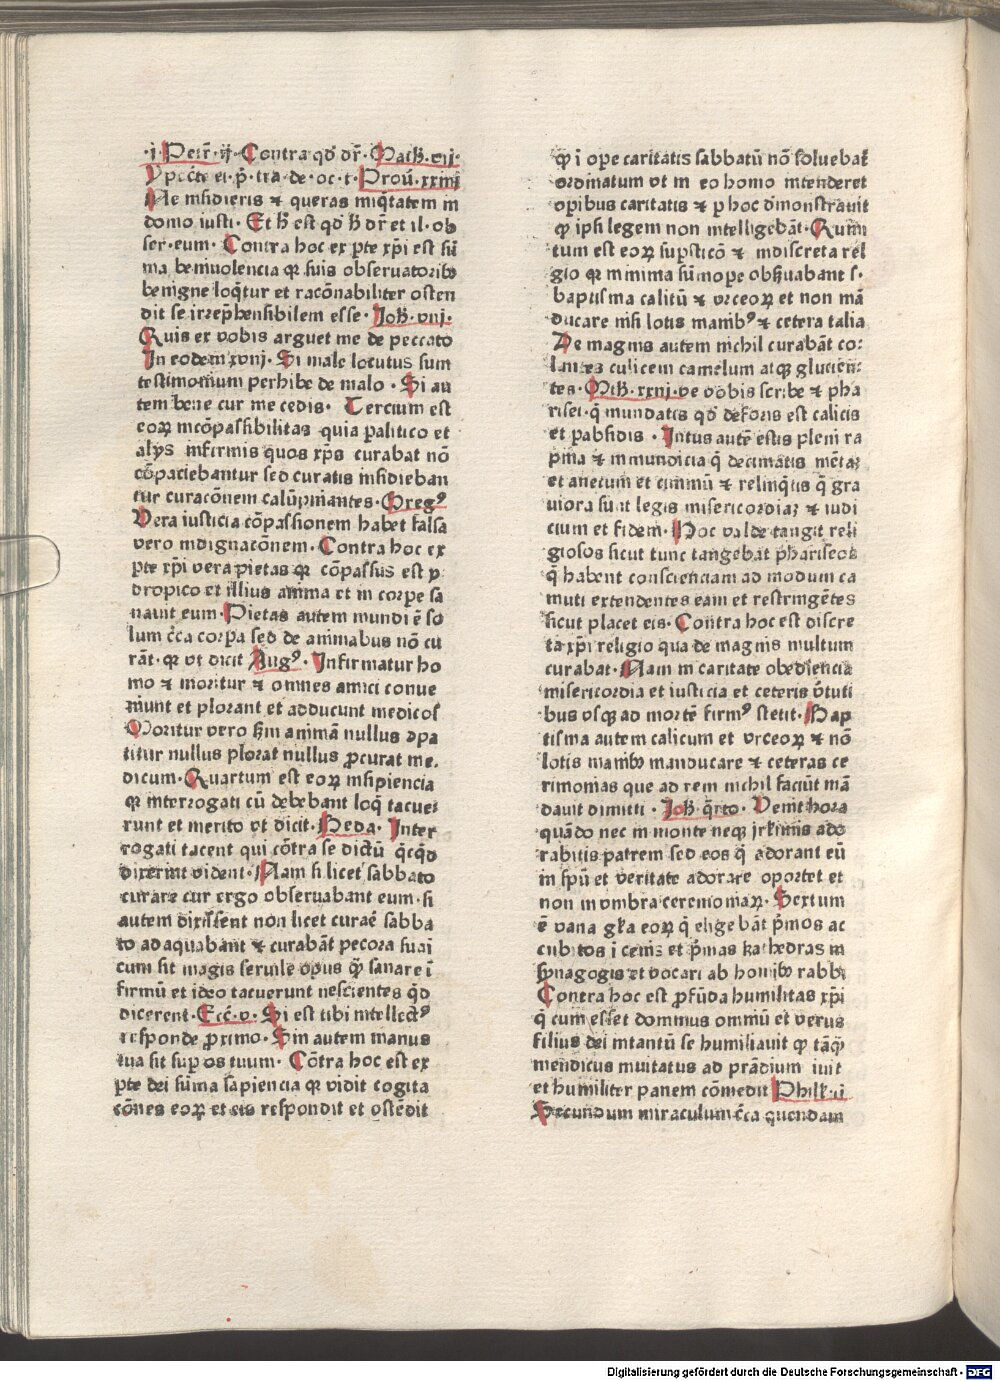 ·i·Petr̄·ij·Contra qd̕ dr̄·Math̕·vij·
Ypoc̄te ei·p̄·tra·de·oc·t·Prou̅·xxiiij
Ne insidieris ⁊ queras iniq̄tatem in
domo iusti· Et h̕ est qd̕ h̕ dr̄ et il·ob
ser·eum· Contra hoc ex p̱te xp̄i est su̅
ma beniuolencia qꝛ suis obseruatoribꝰ
benigne loq̄tur et racōnabiliter osten
dit se irrep̄hensibilem esse· Joh̕·viij·
Quis ex vobis arguet me de peccato
In eodem xviij· Si male locutus sum
testimonium perhibe de malo · Si au
tem bene cur me cedis· Tercium est
eoꝝ incōpassibilitas quia paralitico et
alijs infirmis quos xp̄s curabat nō
cōpaciebantur sed curatis insidieban
tur curacōnem calūpniantes·Gregꝰ
Vera iusticia cōpassionem habet falsa
vero indignacōnem·Contra hoc ex
p̱te xp̄i vera pietas qꝛ cōpassus est y
dropico et illius anima et in corpe sa
nauit eum·Pietas autem mundi ē so
lum c̄ca corpa sed de animabus nō cu
rāt·qꝛ vt dicit Augꝰ· Infirmatur ho
mo ⁊ moritur ⁊ omnes amici conue
niunt et plorant et adducunt medicos
Moritur vero h̕m animā nullus ꝯpa
titur nullus plorat nullus ꝓcurat me·
dicum·Quartum est eoꝝ insipiencia
qꝛ interrogati cū debebant loq̄ tacue
runt et merito vt dicit·Beda· Inter
rogati tacent qui cōtra se dictū q̄cq̄d
dixerint vident·Nam si licet sabbato
curare cur ergo obseruabant eum·si
autem dixissent non licet curare sabba
to adaquabant ⁊ curabāt pecora sua
cum sit magis seruile opus q̄ꝫ sanare ī
firmū et ideo tacuerunt nescientes q̄d
dicerent·Ecc̄·v· Si est tibi intellectꝰ
responde ꝓximo·Sin autem manus
tua sit suꝑ os tuum· Cōtra hoc est ex
p̱te dei sūma sapiencia qꝛ vidit cogita
cōnes eoꝝ et eis respondit et ostēdit
q̄ꝫ ī ope caritatis sabbatū nō soluebat̄
ordinatum vt in eo homo intenderet
opibus caritatis ⁊ p hoc d̄monstrauit
q̄ꝫ ipsi legem non intelligebāt·Quin
tum est eoꝝ suꝑsticō ⁊ indiscreta reli
gio qꝛ minima sūmope obß̄uabant s·
baptisma calicū ⁊ vrceoꝝ et non mā
ducare nisi lotis manibꝰ ⁊ cetera talia
De magnis autem nichil curabāt co·
lantes culicem camelum atqꝫ glucien·
tes·Mth̕·xxiij·ve vobis scribe ⁊ pha
risei·q̄ mundatis qd̕ deforis est calicis
et pabsidis · Intus autē estis pleni ra
pina ⁊ inmundicia q̄ decimatis mētaꝫ
et anetum et ciminū ⁊ relinq̄tis q̄ gra
uiora sunt legis misericordiaꝫ ⁊ iudi
cium et fidem·Hoc valde tangit reli
giosos sicut tunc tangebat phariseos
q̄ habent conscienciam ad modum ca
muti extendentes eam et restringētes
sicut placet eis·Contra hoc est discre
ta xp̄i religio qua de magnis multum
curabat·Nam in caritate obediencia
misericordia et iusticia et ceteris v̄tuti
bus vsqꝫ ad mortē firmꝰ stetit·Bap
tisma autem calicum et vrceoꝝ ⁊ nō
lotis manibꝰ manducare ⁊ ceteras ce
rimonias que ad rem nichil faciūt mā
dauit dimitti · Joh̕·q̄rto· Venit hora
quādo nec in monte neqꝫ jrl̄imis ado
rabitis patrem sed eos q̄ adorant eū
in spū et veritate adorare oportet et
non in vmbra ceremoniaꝝ· Sextum
ē vana gl̄ia eoꝝ q̄ eligebāt p̄mos ac
cubitos ī cenis et p̄mas kathedras in
synagogis et vocari ab homībꝰ rabbi
Contra hoc est ꝓfūda humilitas xp̄i
q̄ cum esset dominus omniū et verus
filius dei intantū se humiliauit q̄ꝫ tāq̄ꝫ
mendicus inuitatus ad prādium iuit
et humiliter panem cōmedit Philip̄·ij
Secundum miraculum c̄ca quendam
Digitalisierung gefördert durch die Deutsche Forschungsgemeinschaft · DFG